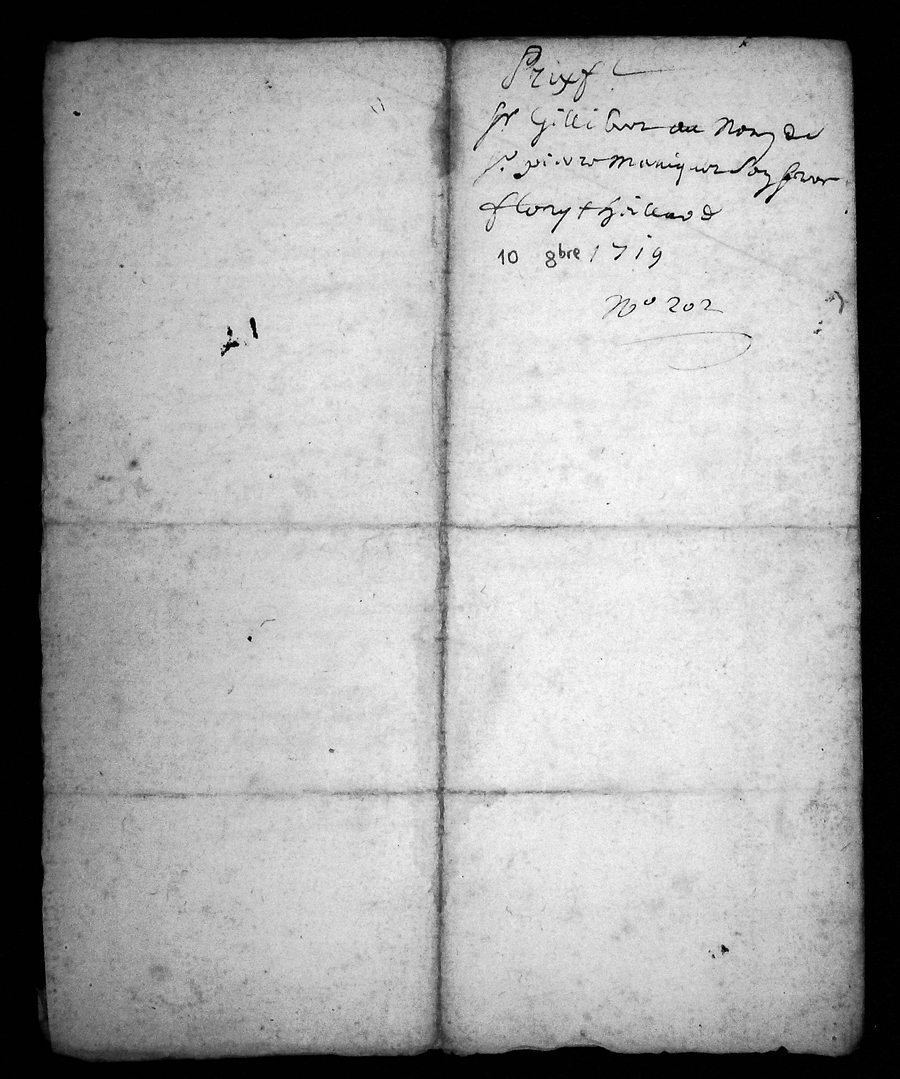 Prixf
Sr Gilliber au Nom de
Sr pierre maniquer Son frere
flory + Gaillard
10 8bre 1719
No 202